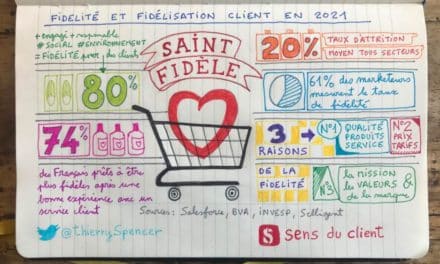 FIDELITÉ ET FIDÉLISATION CLIENT EN 2021
+ engagé + responsable
#SOCIAL #ENVIRONNEMENT
= FIDÉLITÉ pour des clients
80%
SAINT
FIDÈLE
20%
TAUX D'ATTRITION
MOYEN TOUS SECTEURS
61% des marketeurs
mesurent le taux
de fidélité
74%
des Français prêts à être
plus fidèles après une
bonne expérience avec un
service client
3
RAISONS
DE LA
FIDELITÉ
N°1
QUALITÉ
PRODUITS
SERVICE
N°2
PRIX
TARIFS
N°3
la mission
les VALEURS &
de la marque
Sources: Salesforce, BVA, INVESP, Selligent
@thierrySpencer
S Sens du client